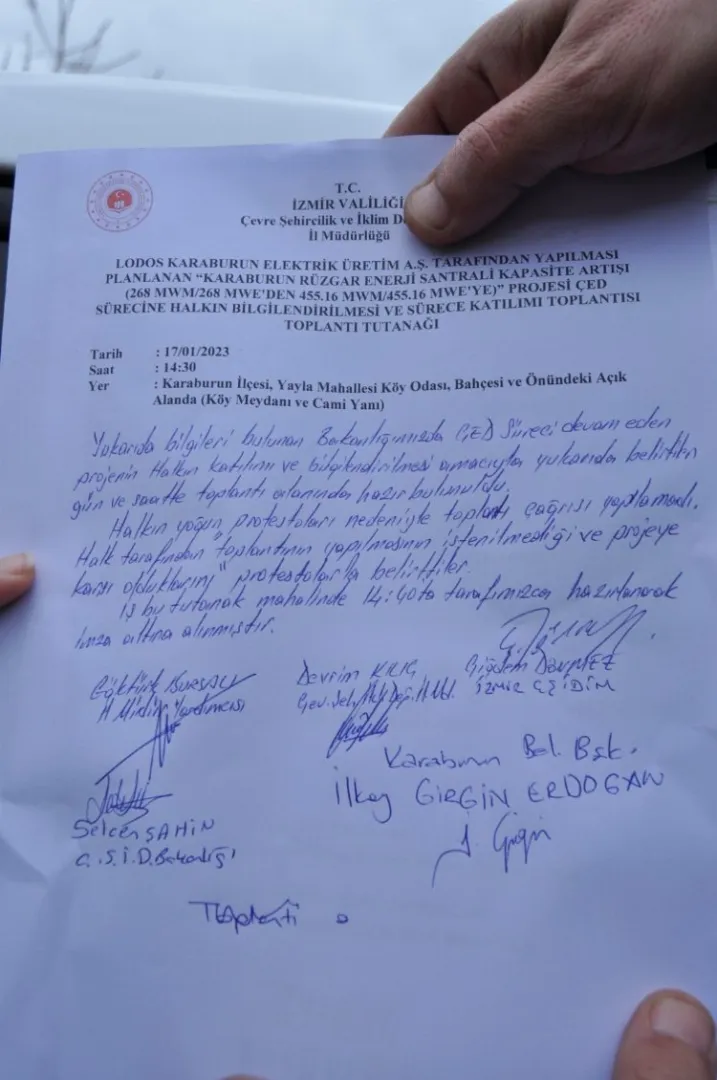 T.C.
İZMİR VALİLİĞİ
Çevre Şehircilik ve İklim De
İl Müdürlüğü
LODOS KARABURUN ELEKTRİK ÜRETİM A.Ş. TARAFINDAN YAPILMASI
PLANLANAN “KARABURUN RÜZGAR ENERJİ SANTRALİ KAPASİTE ARTIŞI
(268 MWM/268 MWE'DEN 455.16 MWM/455.16 MWE'YE)” PROJESİ ÇED
SÜRECİNE HALKIN BİLGİLENDİRİLMESİ VE SÜRECE KATILIMI TOPLANTISI
TOPLANTI TUTANAĞI
Tarih : 17/01/2023
Saat : 14:30
Yer : Karaburun İlçesi, Yayla Mahallesi Köy Odası, Bahçesi ve Önündeki Açık
Alanda (Köy Meydanı ve Cami Yanı)
Yukarıda bilgileri bulunan Bakanlığımızda ÇED Süreci devam eden
projenin Halkın katılımı ve bilgilendirilmesi amacıyla yukarıda belirtilen
gün ve saatte toplantı alanında hazır bulunuldu.
Halkın yoğun protestoları nedeniyle toplantı çağrısı yapılamadı.
Halk tarafından "toplantının yapılmasının istenilmediği ve projeye
karşı olduklarını" protestolarla belirttiler.
İş bu tutanak mahalinde 14:40ta tarafımızca hazırlanarak
imza altına alınmıştır.
Göktürk Devrim KILIÇ Çiğdem
İl Müdür Yardımcısı İZMİR ÇŞİDİM
Karaburun Bel. Bşk.
İlkay GİRGİN ERDOĞAN
Selcen ŞAHİN
Ç.Ş.İ.D.Bakanlığı
Toplantı